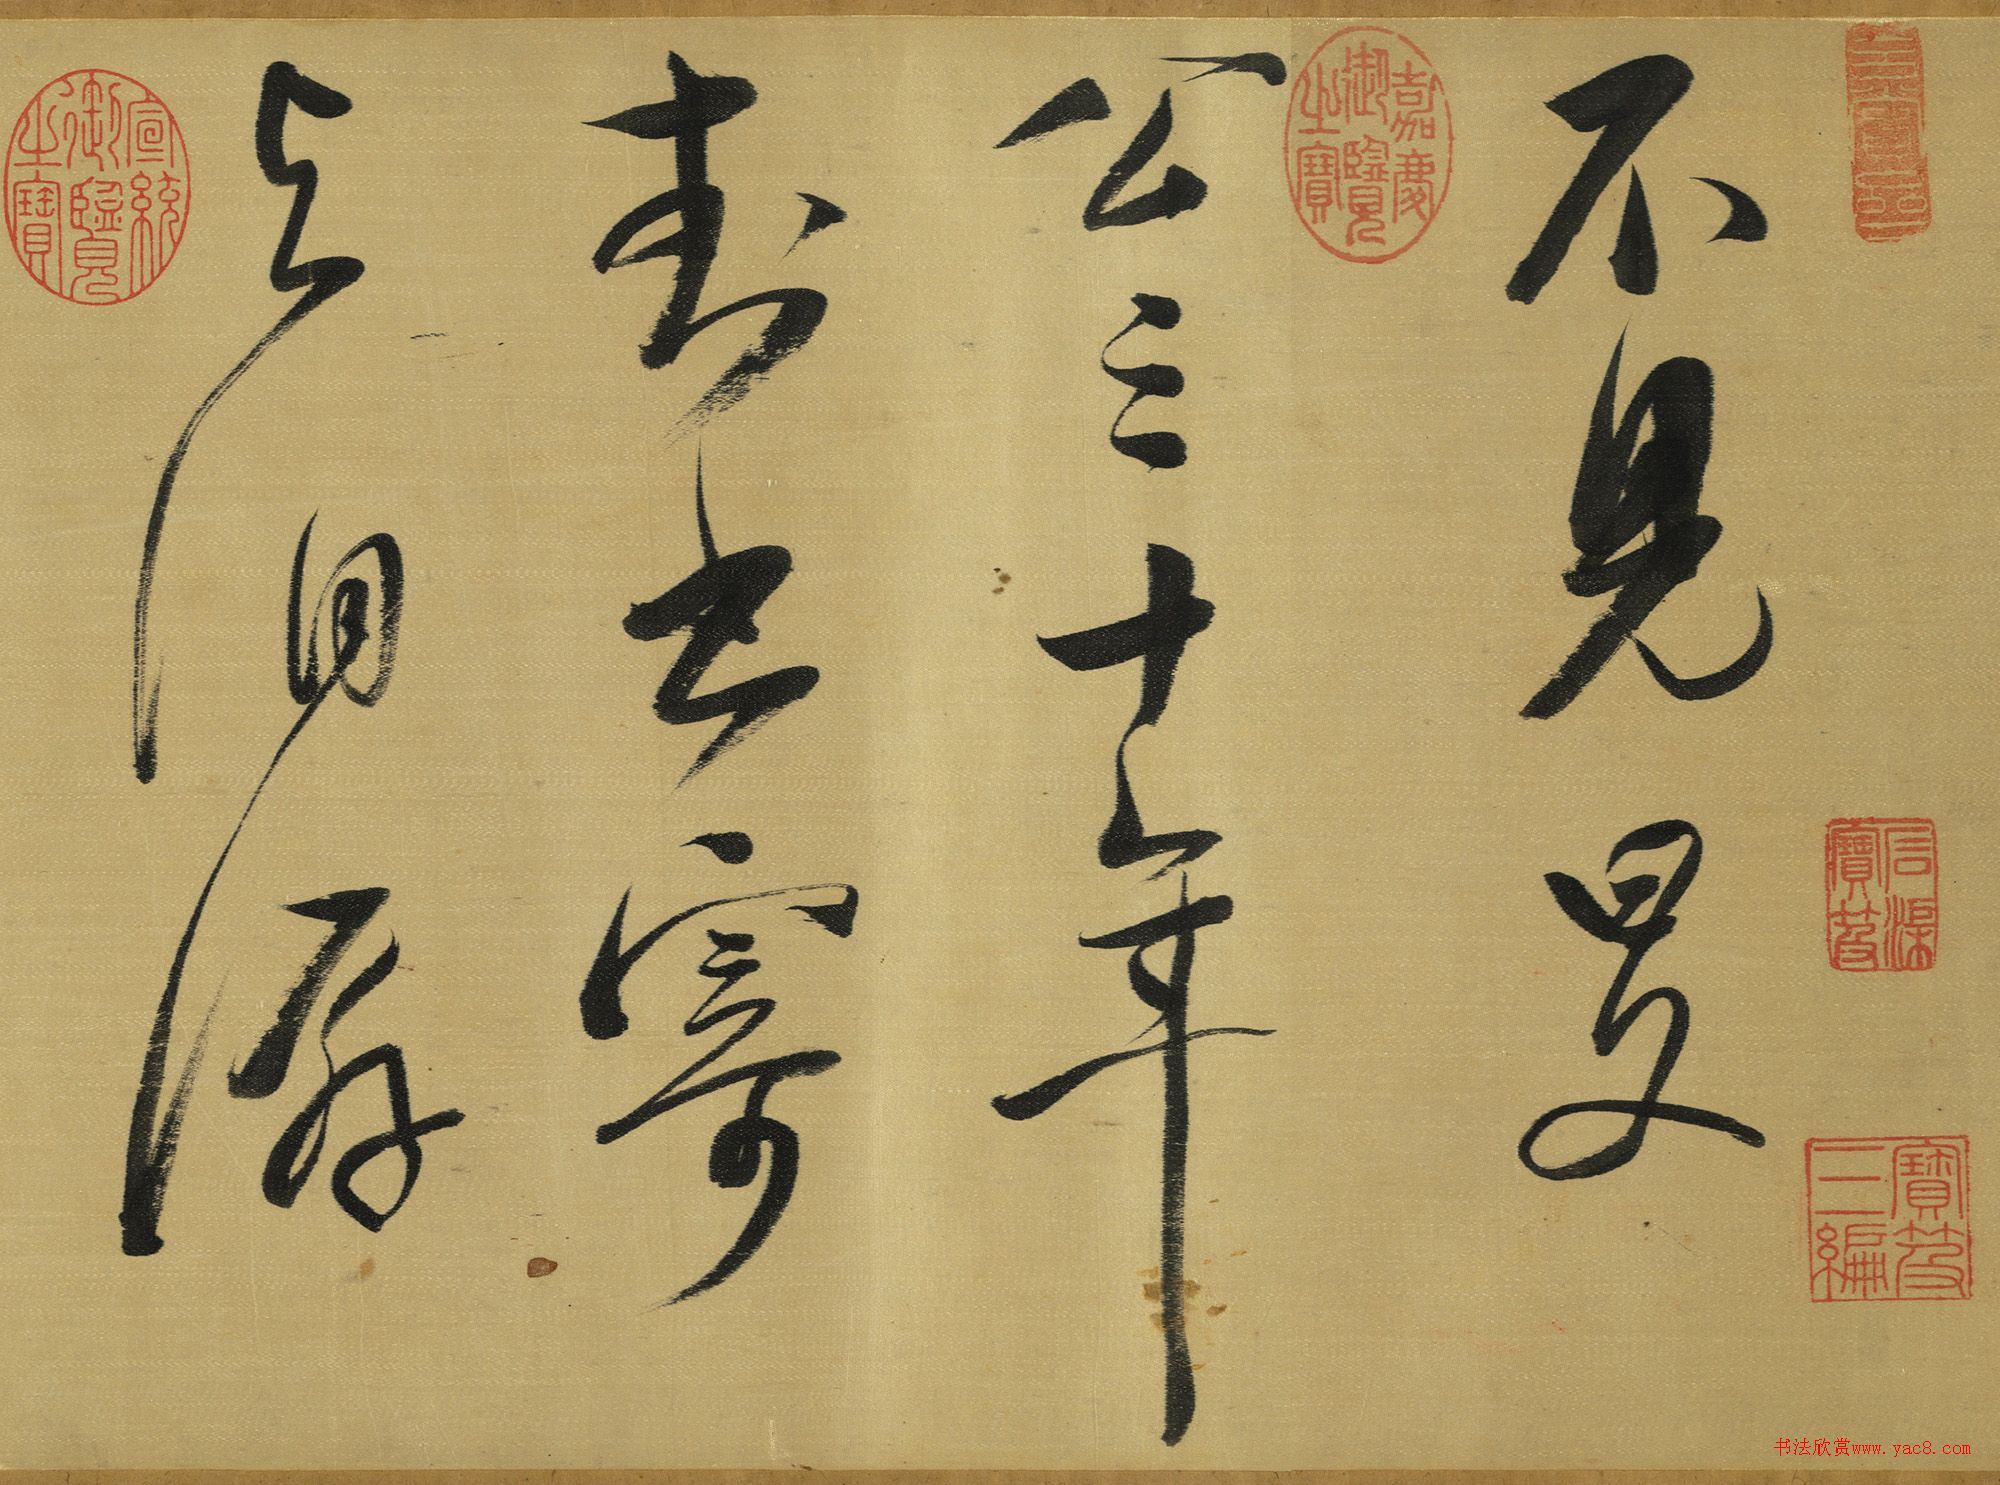 不見旻
公三十年
封書寄
與泪潺
嘉慶御覽之寶
石渠寶笈
寶笈三編
宣統御覽之寶
书法欣赏www.yac8.com